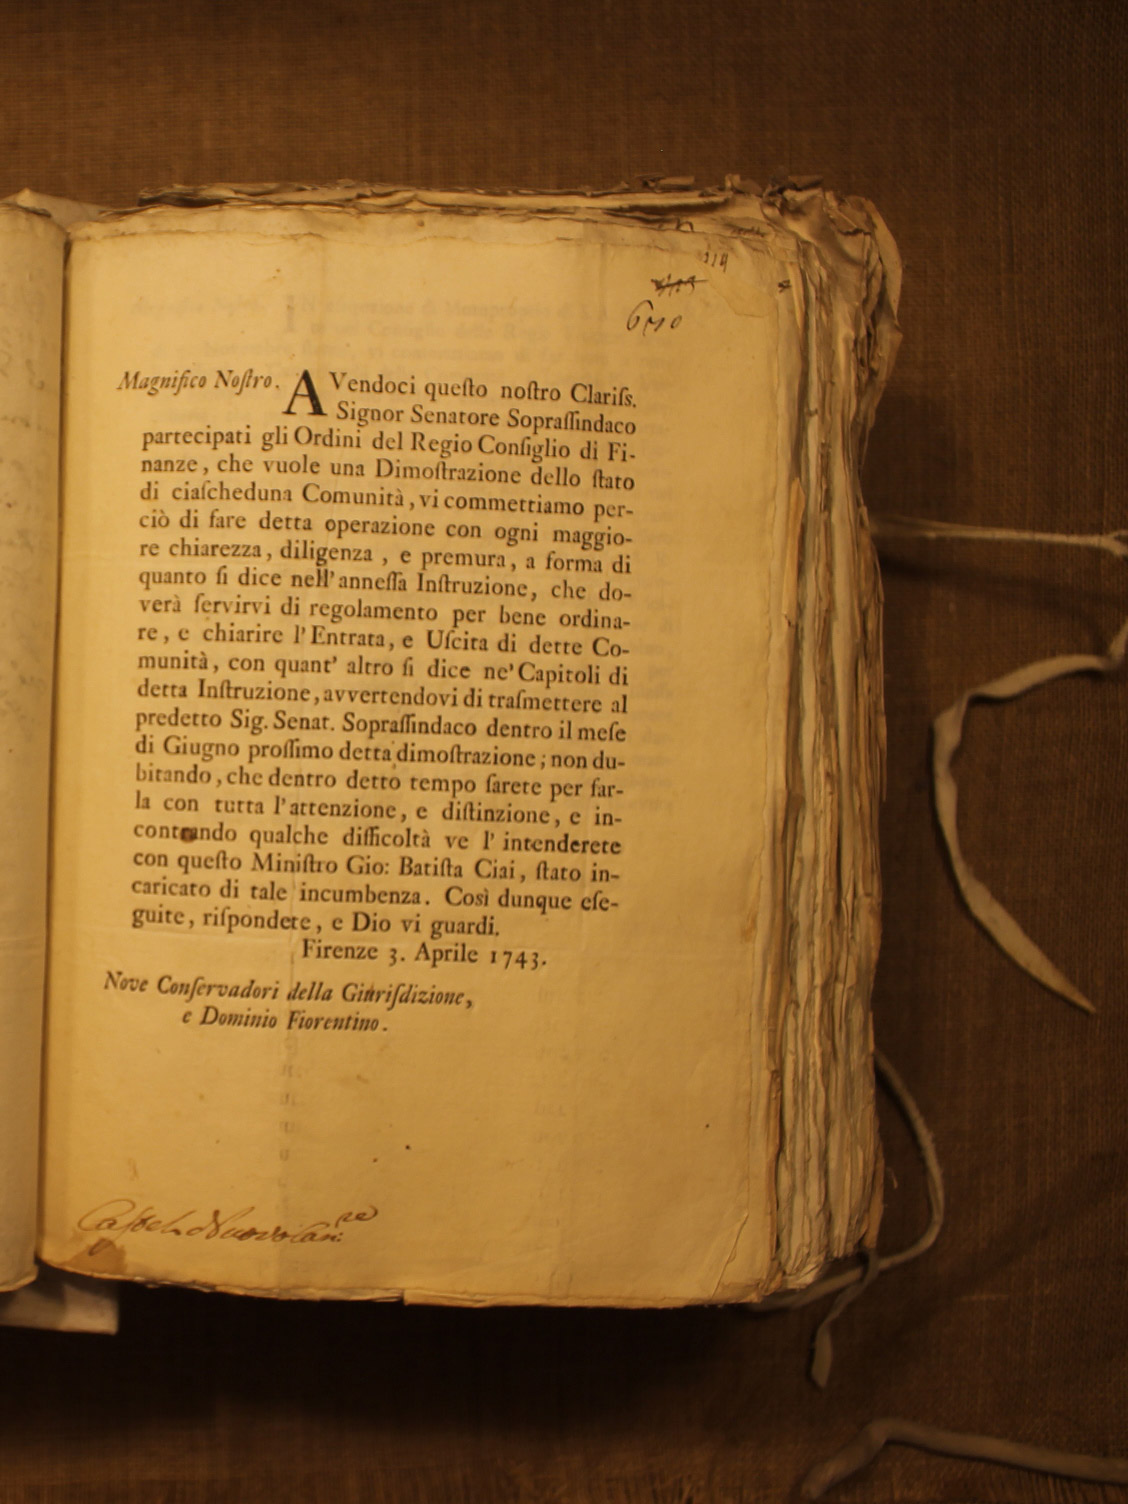 114
610
Magnifico Noſtro. AVendoci queſto noſtro Clariſs.
Signor Senatore Sopraſſindaco
partecipati gli Ordini del Regio Conſiglio di Fi-
nanze, che vuole una Dimoſtrazione dello ſtato
di ciaſcheduna Comunità, vi commettiamo per-
ciò di fare detta operazione con ogni maggio-
re chiarezza, diligenza, e premura, a forma di
quanto ſi dice nell'anneſſa Inſtruzione, che do-
verà ſervirvi di regolamento per bene ordina-
re, e chiarire l'Entrata, e Uſcita di dette Co-
munità, con quant' altro ſi dice ne' Capitoli di
detta Inſtruzione, avvertendovi di traſmettere al
predetto Sig. Senat. Sopraſſindaco dentro il meſe
di Giugno proſſimo detta dimoſtrazione; non du-
bitando, che dentro detto tempo ſarete per far-
la con tutta l'attenzione, e diſtinzione, e in-
contrando qualche difficoltà ve l' intenderete
con queſto Miniſtro Gio: Batiſta Ciai, ſtato in-
caricato di tale incumbenza. Così dunque eſe-
guite, riſpondete, e Dio vi guardi.
Firenze 3. Aprile 1743.
Nove Conſervadori della Giuriſdizione,
e Dominio Fiorentino.